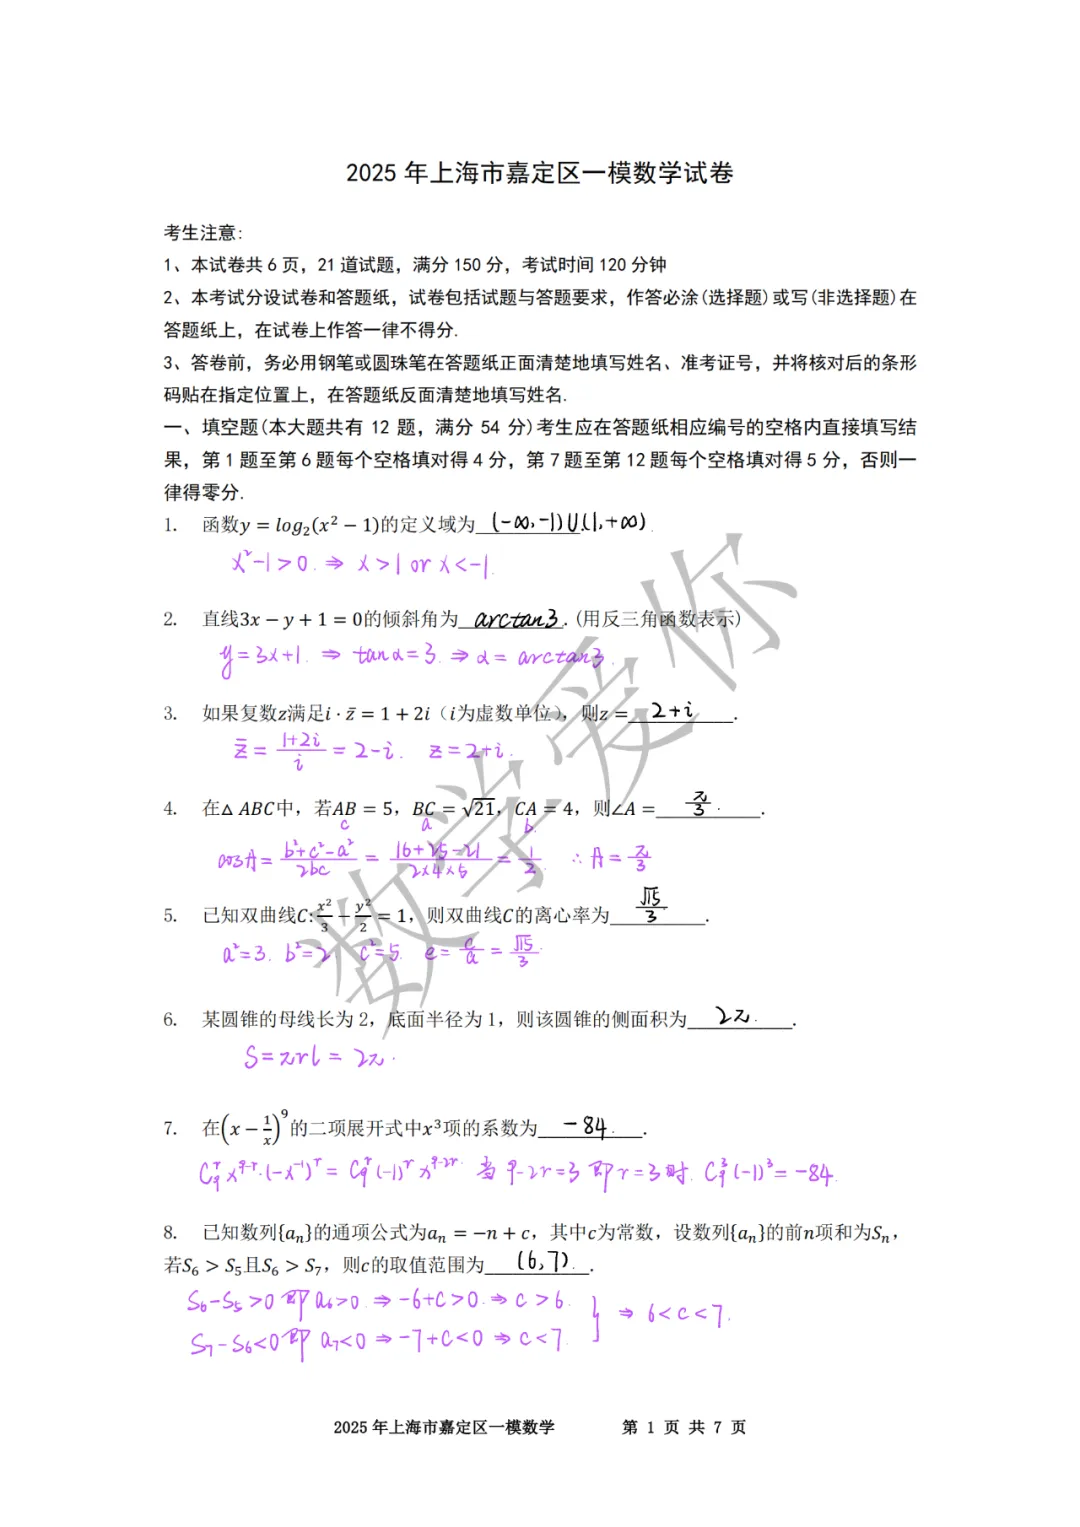 2025 年上海市嘉定区一模数学试卷
考生注意:
1、本试卷共 6 页，21 道试题，满分 150 分，考试时间 120 分钟
2、本考试分设试卷和答题纸，试卷包括试题与答题要求，作答必涂(选择题)或写(非选择题)在
答题纸上，在试卷上作答一律不得分.
3、答卷前，务必用钢笔或圆珠笔在答题纸正面清楚地填写姓名、准考证号，并将核对后的条形
码贴在指定位置上，在答题纸反面清楚地填写姓名.
一、填空题(本大题共有 12 题，满分 54 分)考生应在答题纸相应编号的空格内直接填写结
果，第 1 题至第 6 题每个空格填对得 4 分，第 7 题至第 12 题每个空格填对得 5 分，否则一
律得零分.
1. 函数y = log₂(x² − 1)的定义域为 (-∞,-1)∪(1,+∞).
x²-1>0. ⇒ x>1 or x<-1.
2. 直线3x − y + 1 = 0的倾斜角为 arctan3. (用反三角函数表示)
y=3x+1. ⇒ tanα=3. ⇒ α= arctan3.
3. 如果复数z满足i · z̄ = 1 + 2i（i为虚数单位），则z = 2+i.
z̄ = (1+2i)/i = 2-i. z=2+i.
4. 在△ ABC中，若AB = 5，BC = √21，CA = 4，则∠A = π/3.
c a b.
cosA = (b²+c²-a²)/2bc = (16+25-21)/(2×4×5) = 1/2 ∴ A = π/3
5. 已知双曲线C: x²/3 − y²/2 = 1，则双曲线C的离心率为 √15/3.
a²=3. b²=2. c²=5. e= c/a = √15/3.
6. 某圆锥的母线长为 2，底面半径为 1，则该圆锥的侧面积为 2π.
S=πrl = 2π.
7. 在(x − 1/x)⁹的二项展开式中x³项的系数为 -84.
C₉ʳ x⁹⁻ʳ·(-x⁻¹)ʳ = C₉ʳ (-1)ʳ x⁹⁻²ʳ. 当 9-2r=3 即 r=3 时. C₉³ (-1)³ = -84.
8. 已知数列{aₙ}的通项公式为aₙ = −n + c，其中c为常数，设数列{aₙ}的前n项和为Sₙ，
若S₆ > S₅且S₆ > S₇，则c的取值范围为 (6,7).
S₆-S₅>0 即 a₆>0. ⇒ -6+c>0. ⇒ c>6. } ⇒ 6<c<7.
S₇-S₆<0 即 a₇<0 ⇒ -7+c<0 ⇒ c<7.
数学爱你
2025 年上海市嘉定区一模数学 第 1 页 共 7 页